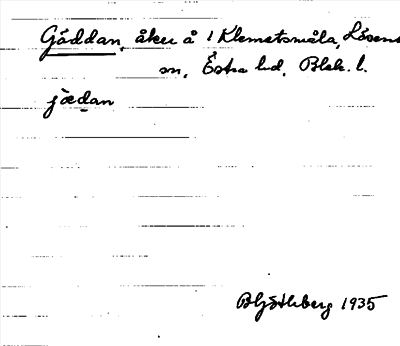 Gäddan, åker å 1 Klemetsmåla, Lösens
sn, Östra hd, Blek. l.
jædan
1935